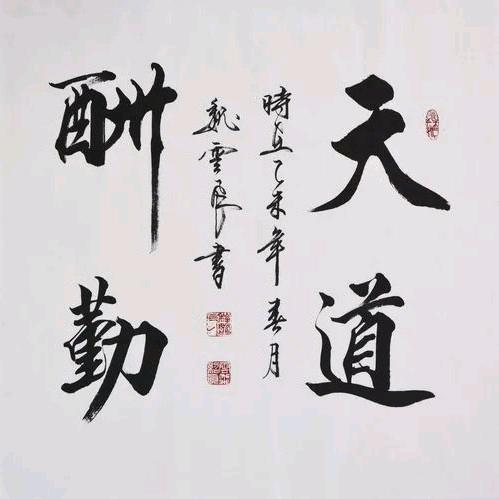 天道
酬勤
時在乙未年春月
魏雲良書